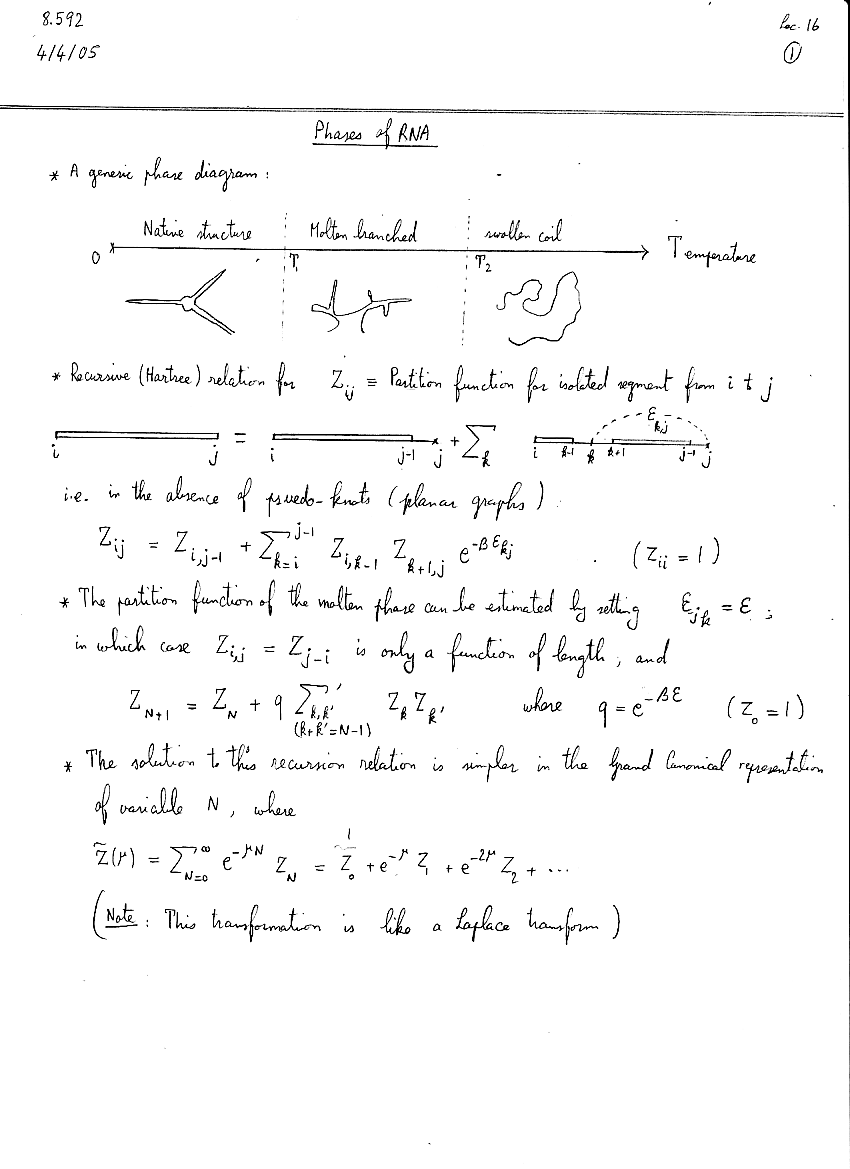 8.592
Lec. 16
4/4/05
①
Phases of RNA
* A generic phase diagram :
Native structure Molten branched swollen coil
0 T₁ T₂ Temperature
* Recursive (Hartree) relation for Z_ij ≡ Partition function for isolated segment from i t j
i j = i j-1 j + Σ_k i k-1 k k+1 j-1 j ε_k,j
i.e. in the absence of psuedo-knots (planar graphs)
Z_ij = Z_i,j-1 + Σ_{k=i}^{j-1} Z_i,k-1 Z_k+1,j e^{-βε_kj} . (Z_ii = 1)
* The partition function of the molten phase can be estimated by setting ε_jk = ε ;
in which case Z_i,j = Z_j-i is only a function of length, and
Z_N+1 = Z_N + q Σ'_{k,k'} Z_k Z_k' where q = e^{-βε} (Z_0 = 1)
(k+k'=N-1)
* The solution to this recursion relation is simpler in the Grand Canonical representation
of variable N, where
1
Z̃(μ) = Σ_{N=0}^∞ e^{-μN} Z_N = Z_0 + e^{-μ} Z_1 + e^{-2μ} Z_2 + ...
(Note : This transformation is like a Laplace transform)